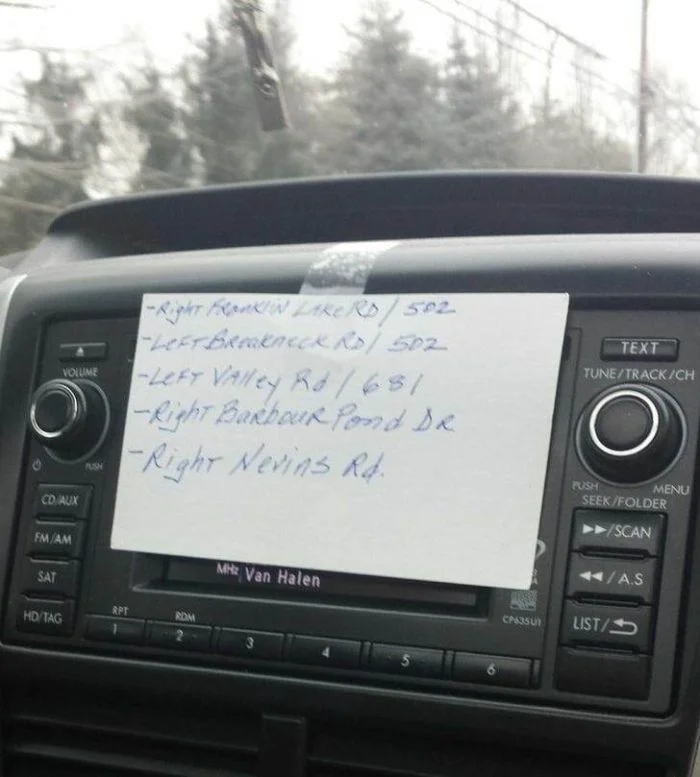 -Right Franklin Lake RD / 502
-Left Breakneck RD / 502
-Left Valley Rd / 681
-Right Barbour Pond DR
-Right Nevins Rd.
TEXT
VOLUME
TUNE/TRACK/CH
PUSH
PUSH MENU
SEEK/FOLDER
CD/AUX
▶▶/SCAN
FM/AM
MHz Van Halen
SAT
◀◀/A.S
HD/TAG
RPT
RDM
CP635U1
LIST/
1 2 3 4 5 6